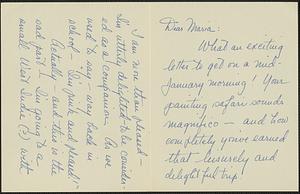 Dear Maria:
What an exciting
letter to get on a mid-
January morning! Your
painting safari sounds
magnifico – and how
completely you've earned
that leisurely and
delightful trip!
I am more than pleased –
I'm utterly delighted to be consider-
ed as a companion. As we
used to say – way back in
school – I'm pink and
Actually – and this is the
sad part – I'm going to a
small West Indie (s) with